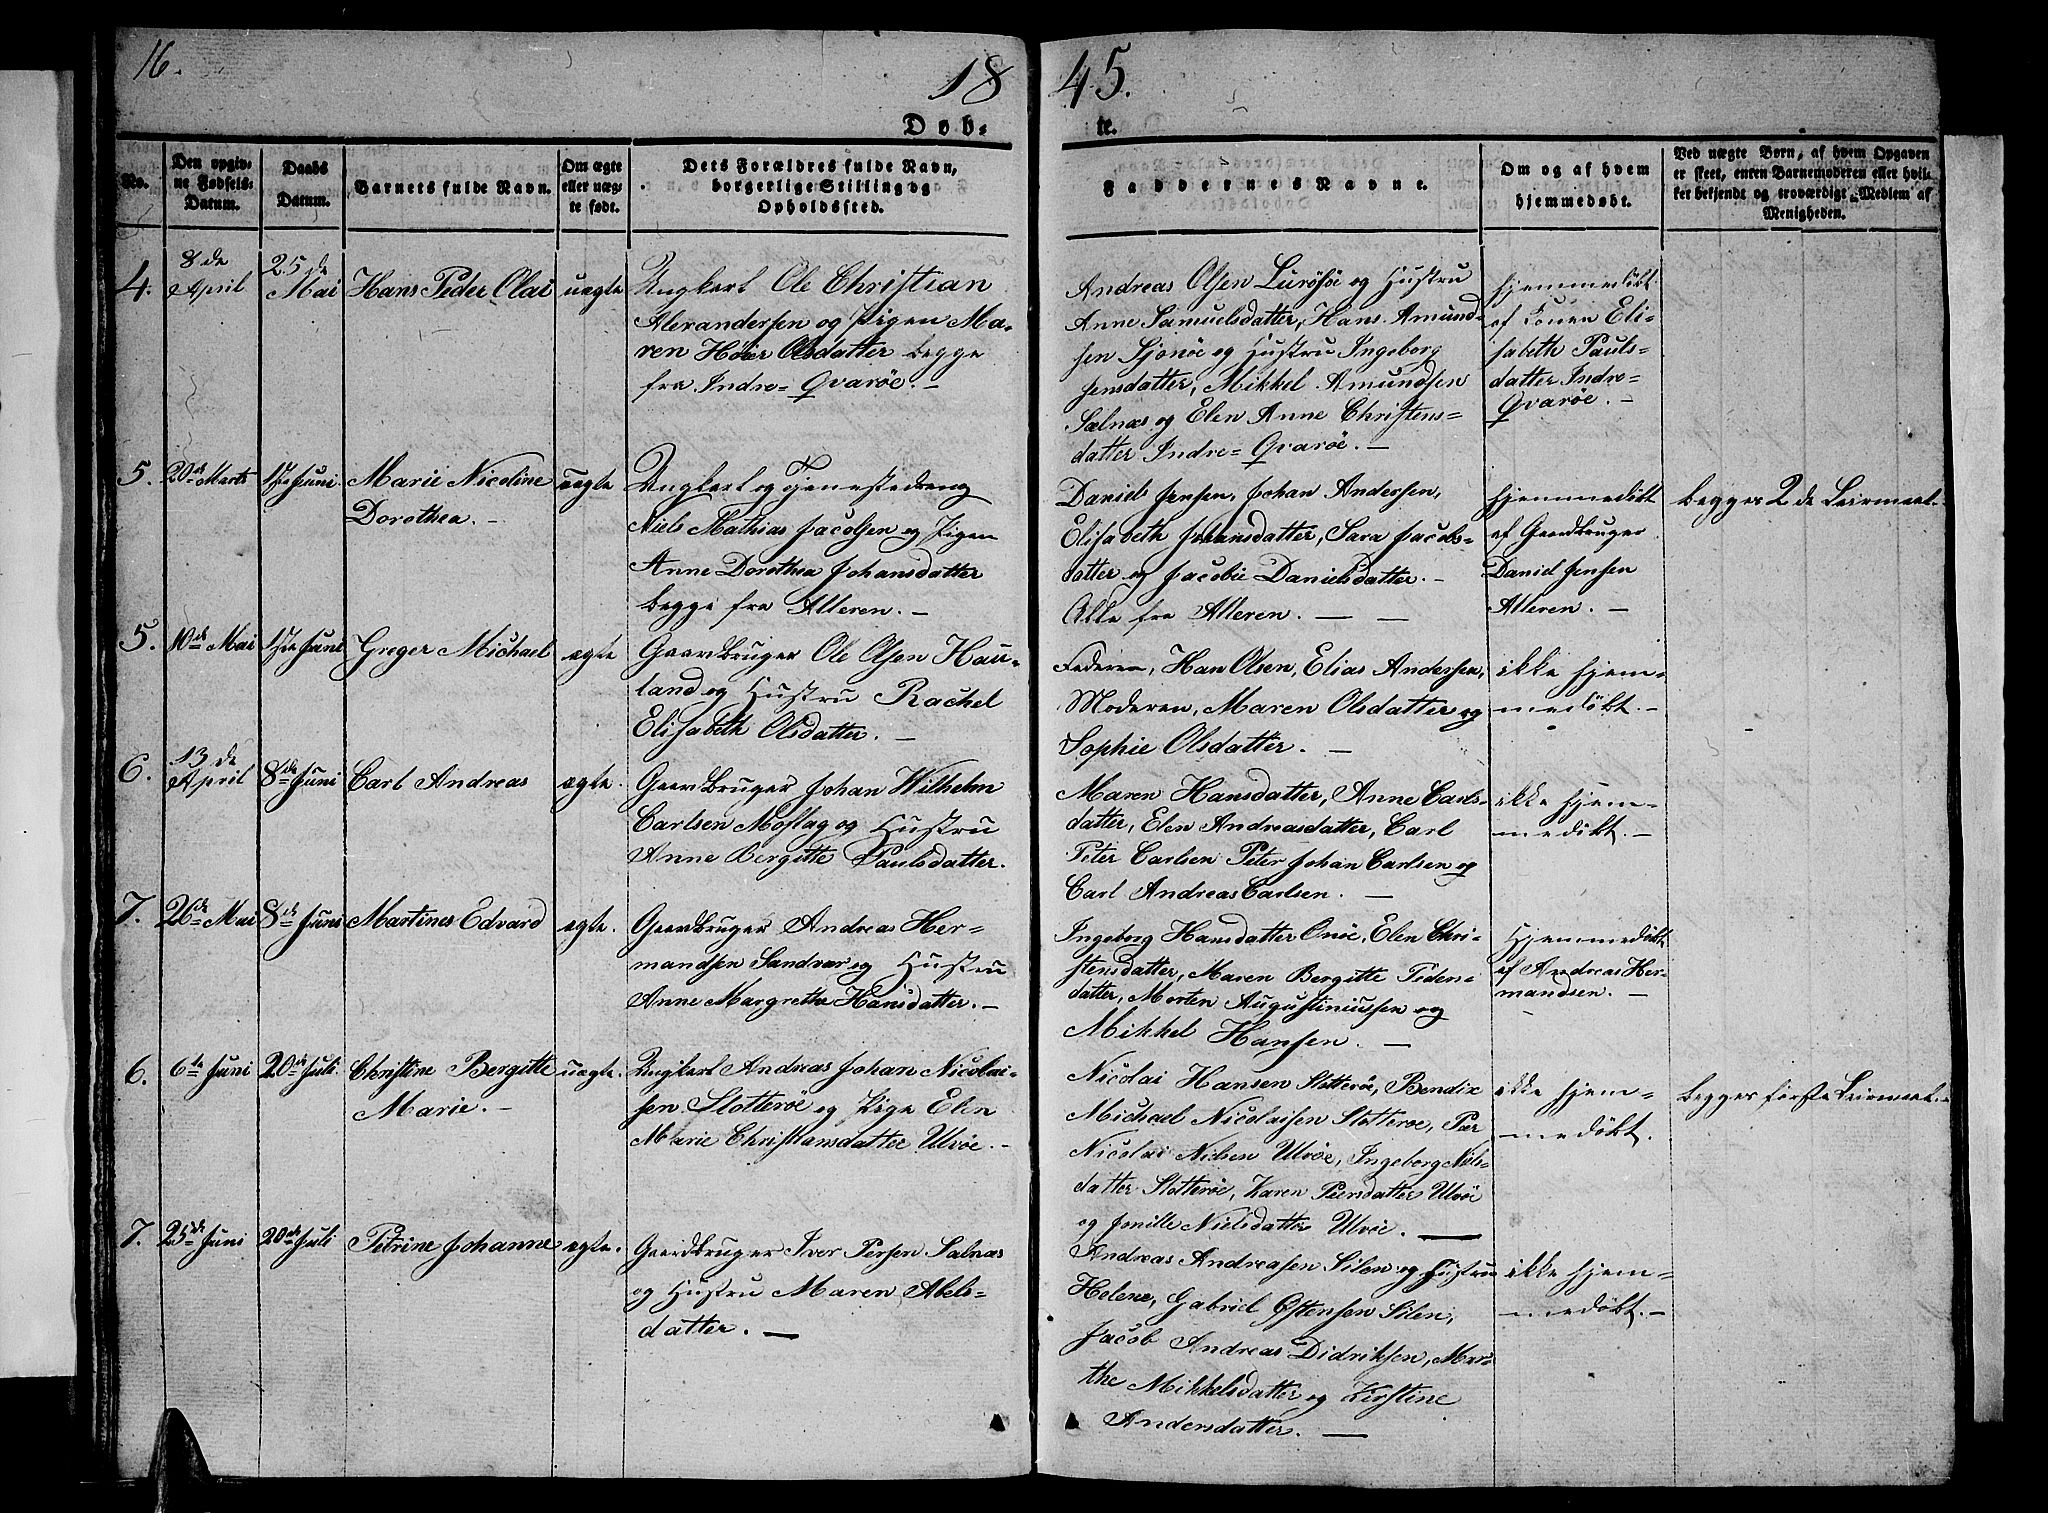 16.
18 45.
Døb- te.
No.
Den opgiv-
ne Fødsels-
Datum.
Daabs
Datum.
Barnets fulde Navn.
Om ægte
eller uæg-
te født.
Dets Forældres fulde Navn,
borgerlige Stilling og
Opholdssted.
Faddernes Navne.
Om og af hvem
hjemmedøbt.
Ved uægte Børn, af hvem Opgaven
er skeet, enten Barnemoderen eller hvil-
ket bekjendt og troværdigt Medlem af
Menigheden.
4.
8de
April
25de
Mai
Hans Peder Olai
uægte
Ungkarl Ole Christian
Alexandersen og Pigen Ma-
ren Høier Olsdatter begge
fra Indre-Qvarøe. -
Andreas Olsen Lurøsøe og Hustru
Anne Samuelsdatter, Hans Amund-
sen Sjonøe og Hustru Ingeborg
Jensdatter, Mikkel Amundsen
Sælnæs og Elen Anne Christens-
datter Indre-Qvarøe. -
hjemmedøbt
af Konen Eli-
sabeth Pauls-
datter Indre-
Qvarøe. -
5.
20de Marts
1ste Juni.
Marie Nicoline
Dorothea. -
uægte
Ungkarl og Tjenestedreng
Niels Mathias Jacobsen og Pigen
Anne Dorothea Johansdatter
begge fra Alteren. -
Daniel Jensen, Johan Andersen,
Elisabeth Johansdatter, Sara Jacobs-
datter og Jacobie Danielsdatter. -
Alle fra Alteren. - -
hjemmedøbt
af Gaardbruger
Daniel Jensen
Alteren. -
begges 2de Leiermaal.
5.
10de Mai
1ste Juni
Greger Michael
ægte
Gaardbruger Ole Olsen Hau-
land og Hustru Rachel
Elisabeth Olsdatter. -
Faderen, Han Olsen, Elias Andersen,
Moderen, Maren Olsdatter og
Sophie Olsdatter. -
ikke hjem-
medøbt. -
6.
13de
April
8de Juni
Carl Andreas
ægte.
Gaardbruger Johan Wilhelm
Carlsen Moflag og Hustru
Anne Bergitte Paulsdatter.
Maren Hansdatter, Anne Carls-
datter, Elen Andreasdatter, Carl
Peter Carlsen Peter Johan Carlsen og
Carl Andreas Carlsen. -
ikke hjem-
medøbt. -
7.
26de Mai
8de Juni
Martines Edvard
ægte.
Gaardbruger Andreas Her-
mandsen Sandvær og Hustru
Anne Margrethe Hansdatter. -
Ingeborg Hansdatter Onøe, Elen Chri-
stensdatter, Maren Bergitte Peders-
datter, Morten Augustiniussen og
Mikkel Hansen. -
Hjemmedøbt
af Andreas Her-
mandsen. -
6.
6te Juni
20de Juli.
Christine Bergitte
Marie. -
uægte.
Ungkarl Andreas Johan Nicolai-
sen Slotterøe og Pige Elen
Marie Christiansdatter Ulvøe. -
Nicolai Hansen Slotterøe, Bendix
Michael Nicolaisen Slotterøe, Peer
Nicolai Nielsen Ulvøe, Ingeborg Niels-
datter Slotterøe, Karen Peersdatter Ulvøe
og Jonille Nielsdatter Ulvøe. -
ikke hjem-
medøbt.
begges første Leiermaal. -
7.
25de Juni
20de Juli
Petrine Johanne
ægte.
Gaardbruger Iver Persen Sælnæs
og Hustru Maren Abels-
datter. -
Andreas Andreasen Silen og Hustru
Helene, Gabriel Østensen Silen,
Jacob Andreas Didriksen, Mar-
the Mikkelsdatter og Kirstine
Andersdatter. -
ikke hjem-
medøbt. -